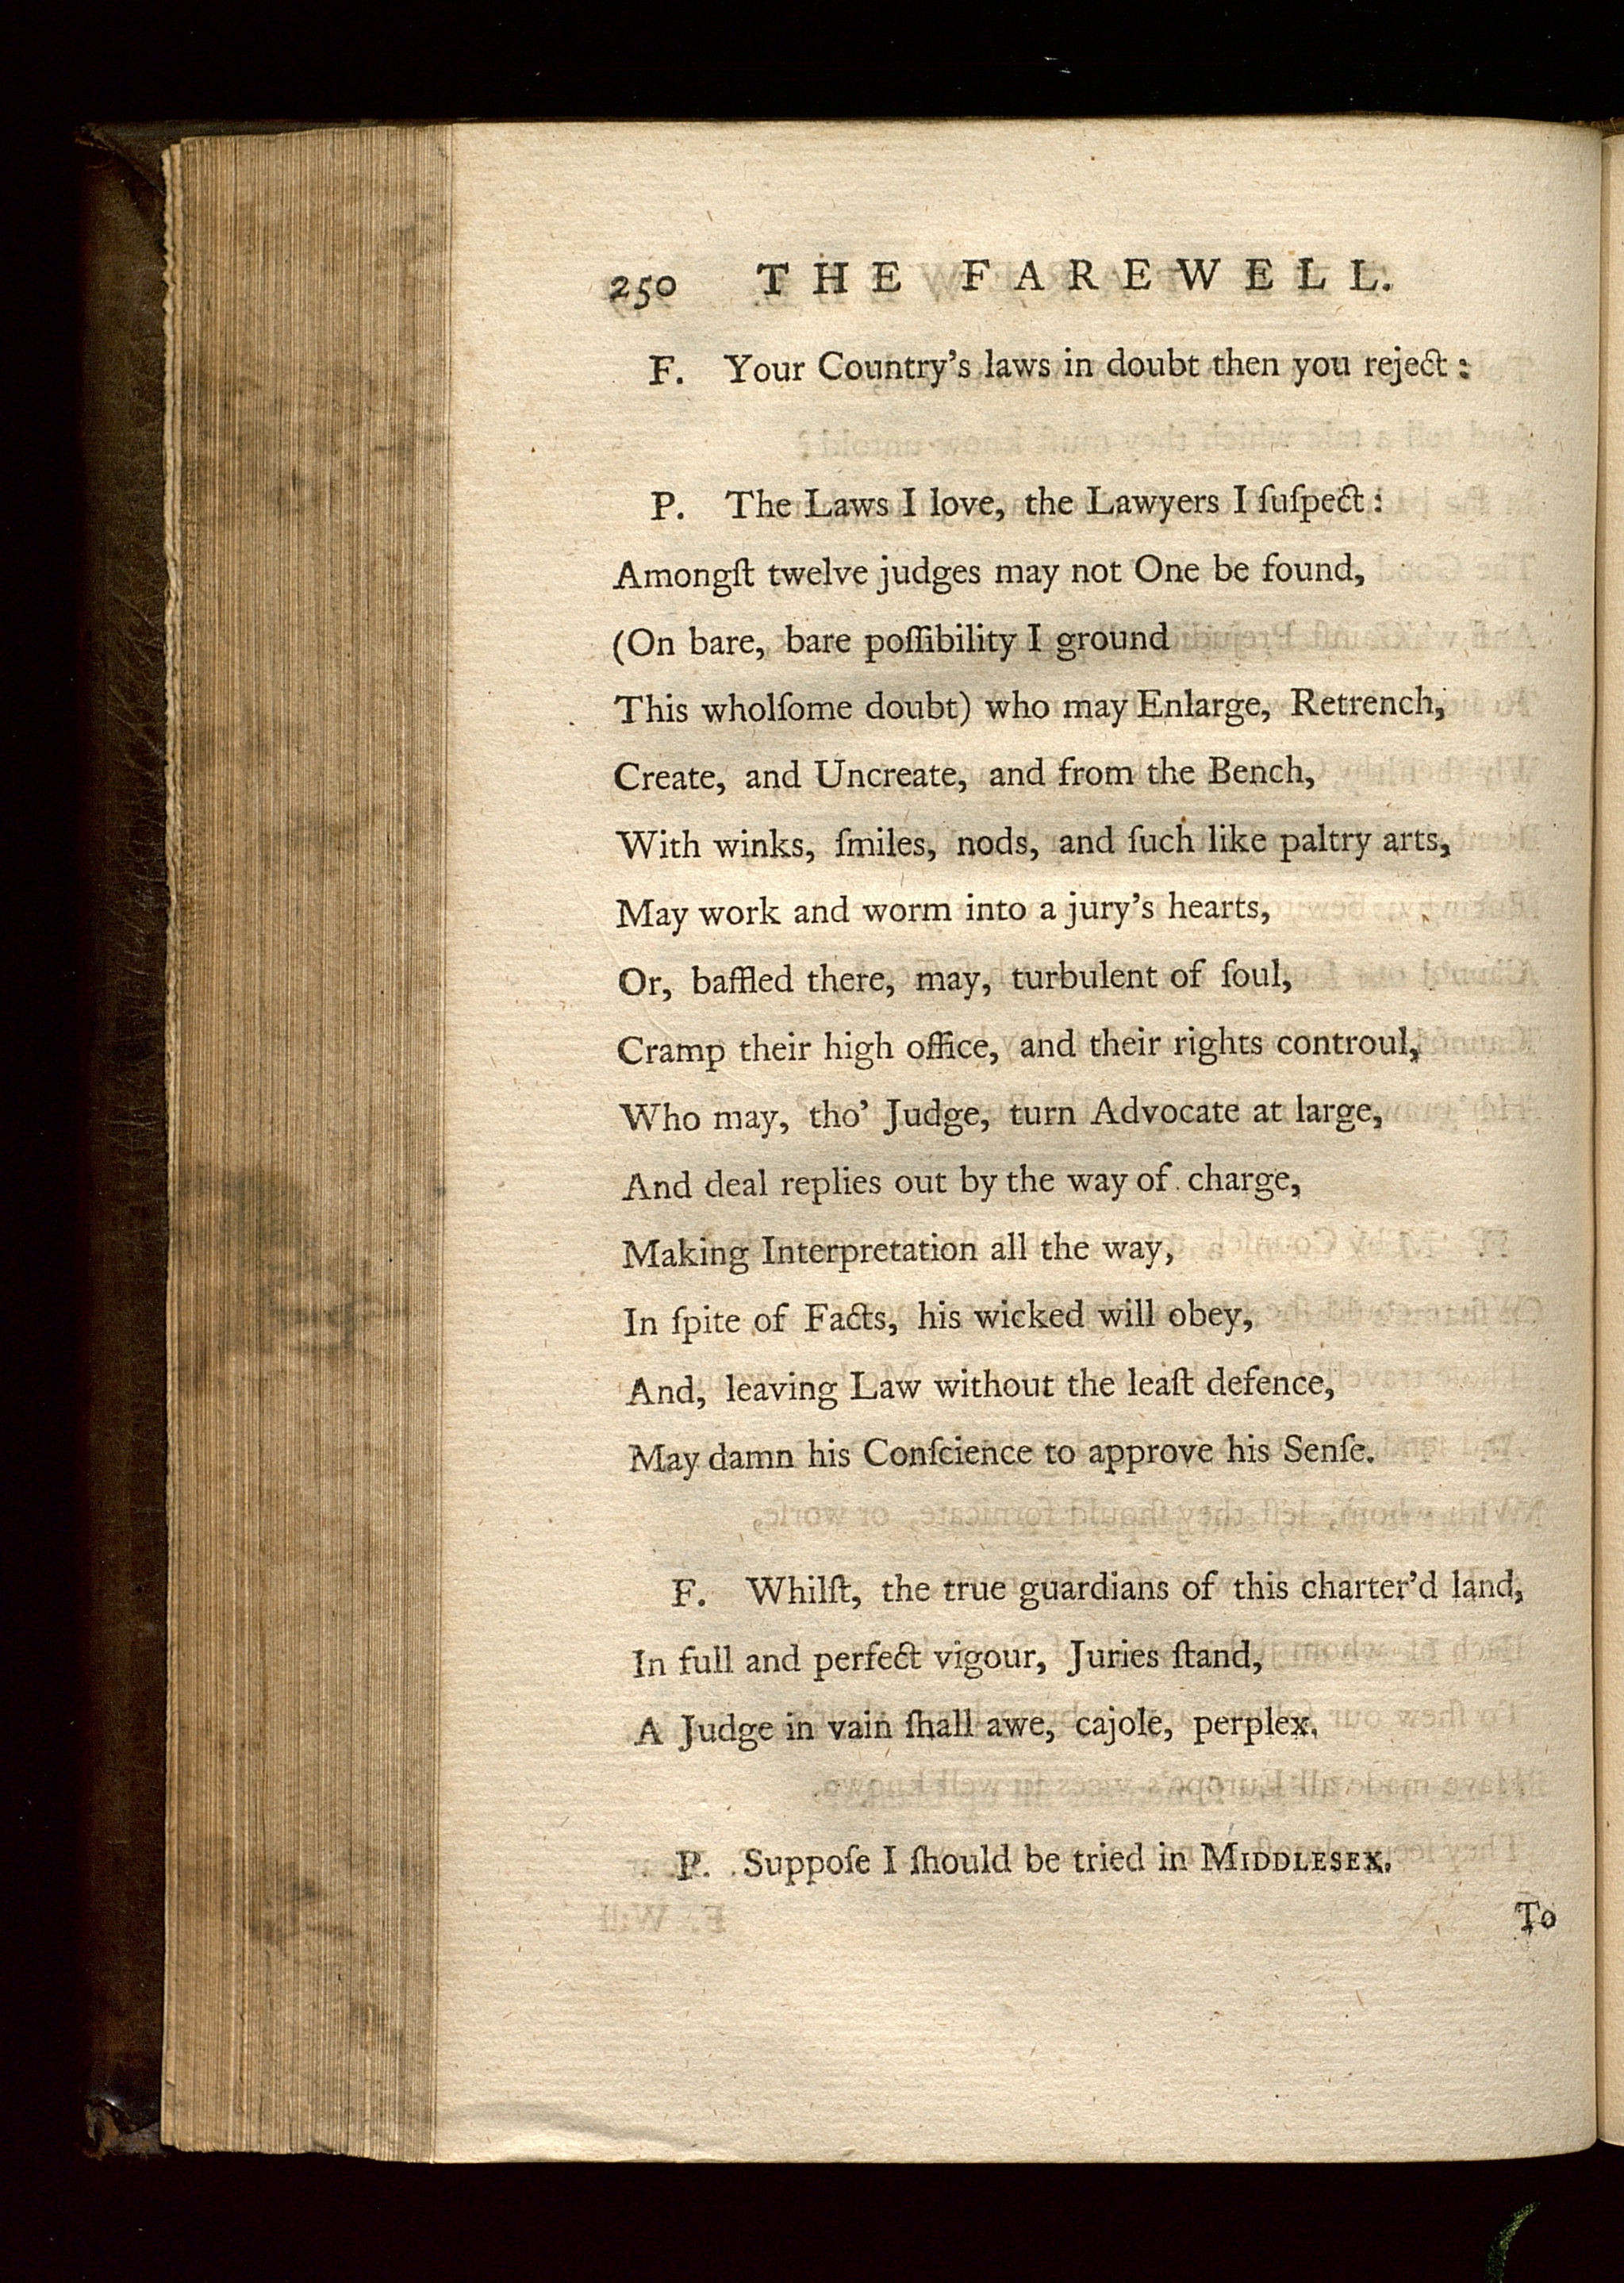 250 THE FAREWELL.
F. Your Country's laws in doubt then you reject:
P. The Laws I love, the Lawyers I ſuſpect:
Amongſt twelve judges may not One be found,
(On bare, bare poſſibility I ground
This wholſome doubt) who may Enlarge, Retrench,
Create, and Uncreate, and from the Bench,
With winks, ſmiles, nods, and ſuch like paltry arts,
May work and worm into a jury's hearts,
Or, baffled there, may, turbulent of ſoul,
Cramp their high office, and their rights controul,
Who may, tho' Judge, turn Advocate at large,
And deal replies out by the way of charge,
Making Interpretation all the way,
In ſpite of Facts, his wicked will obey,
And, leaving Law without the leaſt defence,
May damn his Conſcience to approve his Senſe.
F. Whilſt, the true guardians of this charter'd land,
In full and perfect vigour, Juries ſtand,
A Judge in vain ſhall awe, cajole, perplex.
P. Suppoſe I ſhould be tried in MIDDLESEX.
To